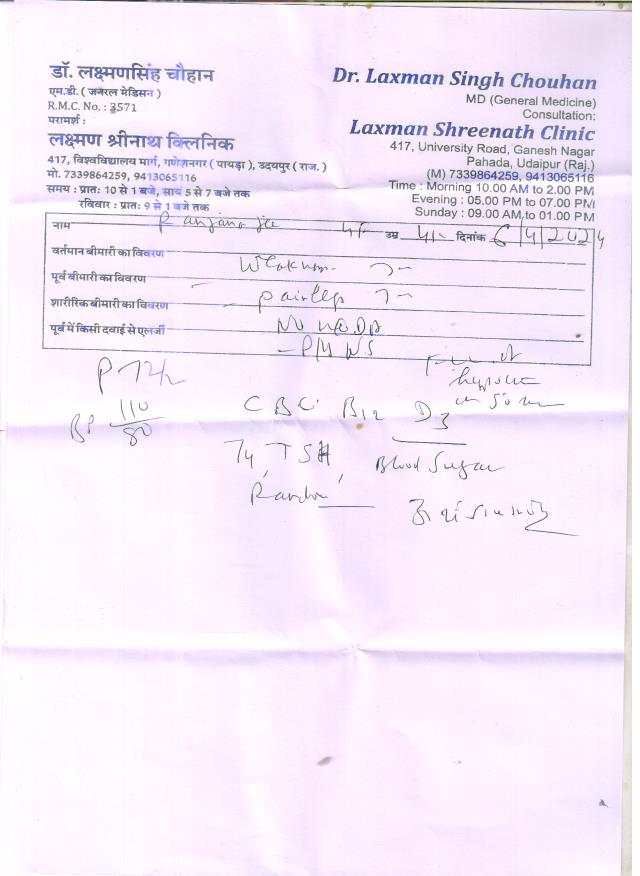 डॉ. लक्ष्मणसिंह चौहान
एम.डी. ( जनरल मेडिसन )
R.M.C. No. : 3571
परामर्श :
लक्ष्मण श्रीनाथ क्लिनिक
417, विश्वविद्यालय मार्ग, गणेशनगर ( पायड़ा ), उदयपुर ( राज. )
मो. 7339864259, 9413065116
समय : प्रातः 10 से 1 बजे, सायं 5 से 7 बजे तक
रविवार : प्रातः 9 से 1 बजे तक
Dr. Laxman Singh Chouhan
MD (General Medicine)
Consultation:
Laxman Shreenath Clinic
417, University Road, Ganesh Nagar
Pahada, Udaipur (Raj.)
(M) 7339864259, 9413065116
Time : Morning 10.00 AM to 2.00 PM
Evening : 05.00 PM to 07.00 PM
Sunday : 09.00 AM to 01.00 PM
नाम Ranjana jee उम्र दिनांक 6/4/2024
वर्तमान बीमारी का विवरण
पूर्व बीमारी का विवरण
शारीरिक बीमारी का विवरण
पूर्व में किसी दवाई से एलर्जी
P 72/
BP 110/80
CBC B12 D3
T4, TSH, Blood Sugar